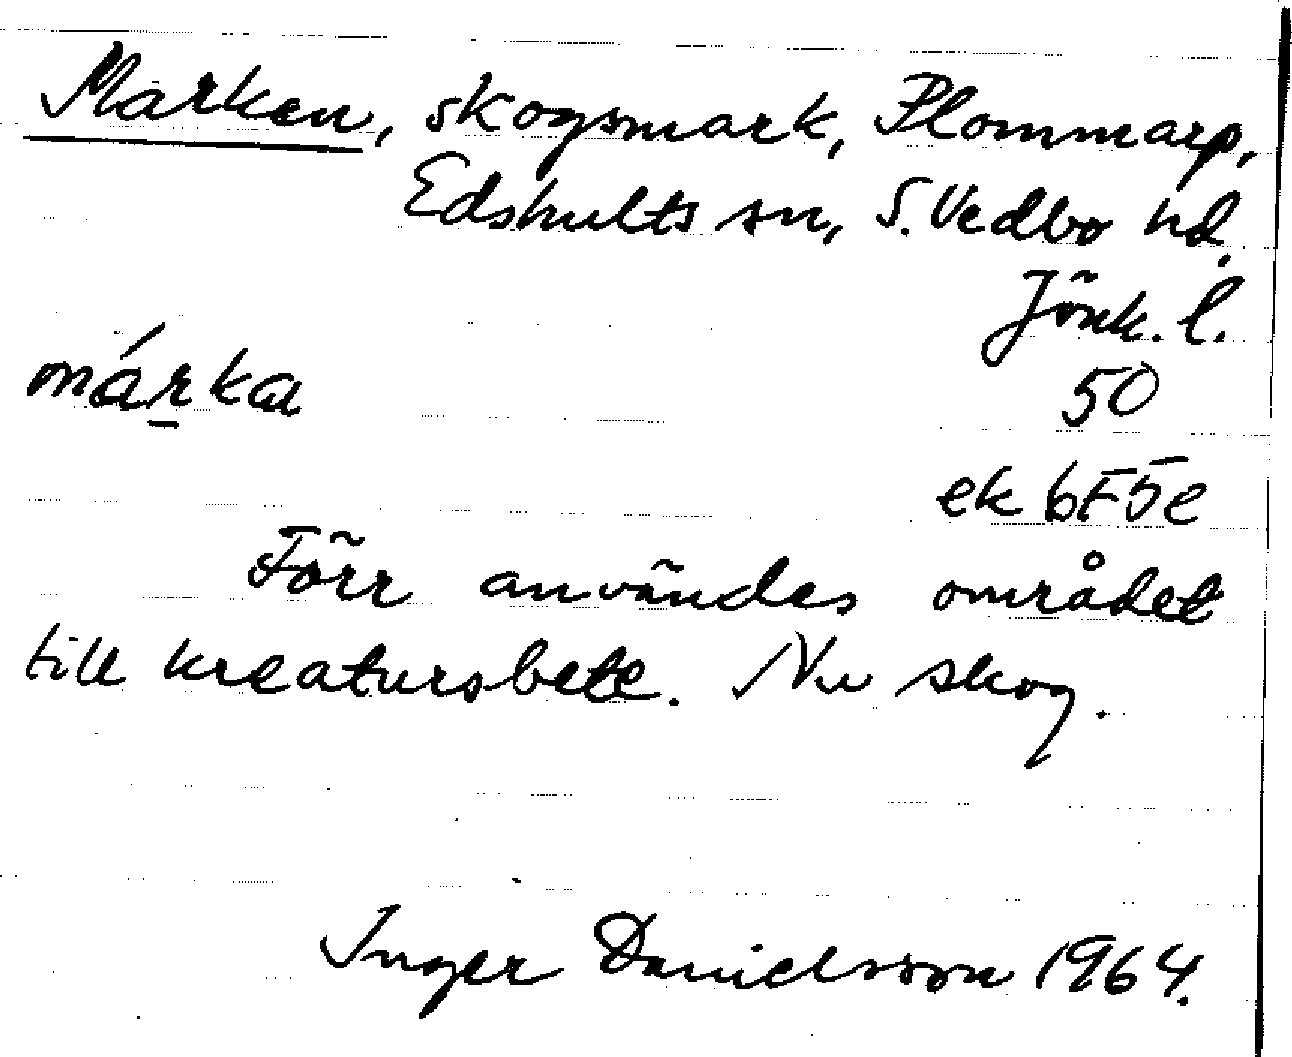 Marken, skogsmark, Plommarp,
Edshults sn, S. Vedbo hd.
Jönk. l.
márka 50
ek 6F5e
Förr användes området
till kreatursbete. Nu skog.
Inger Danielsson 1964.